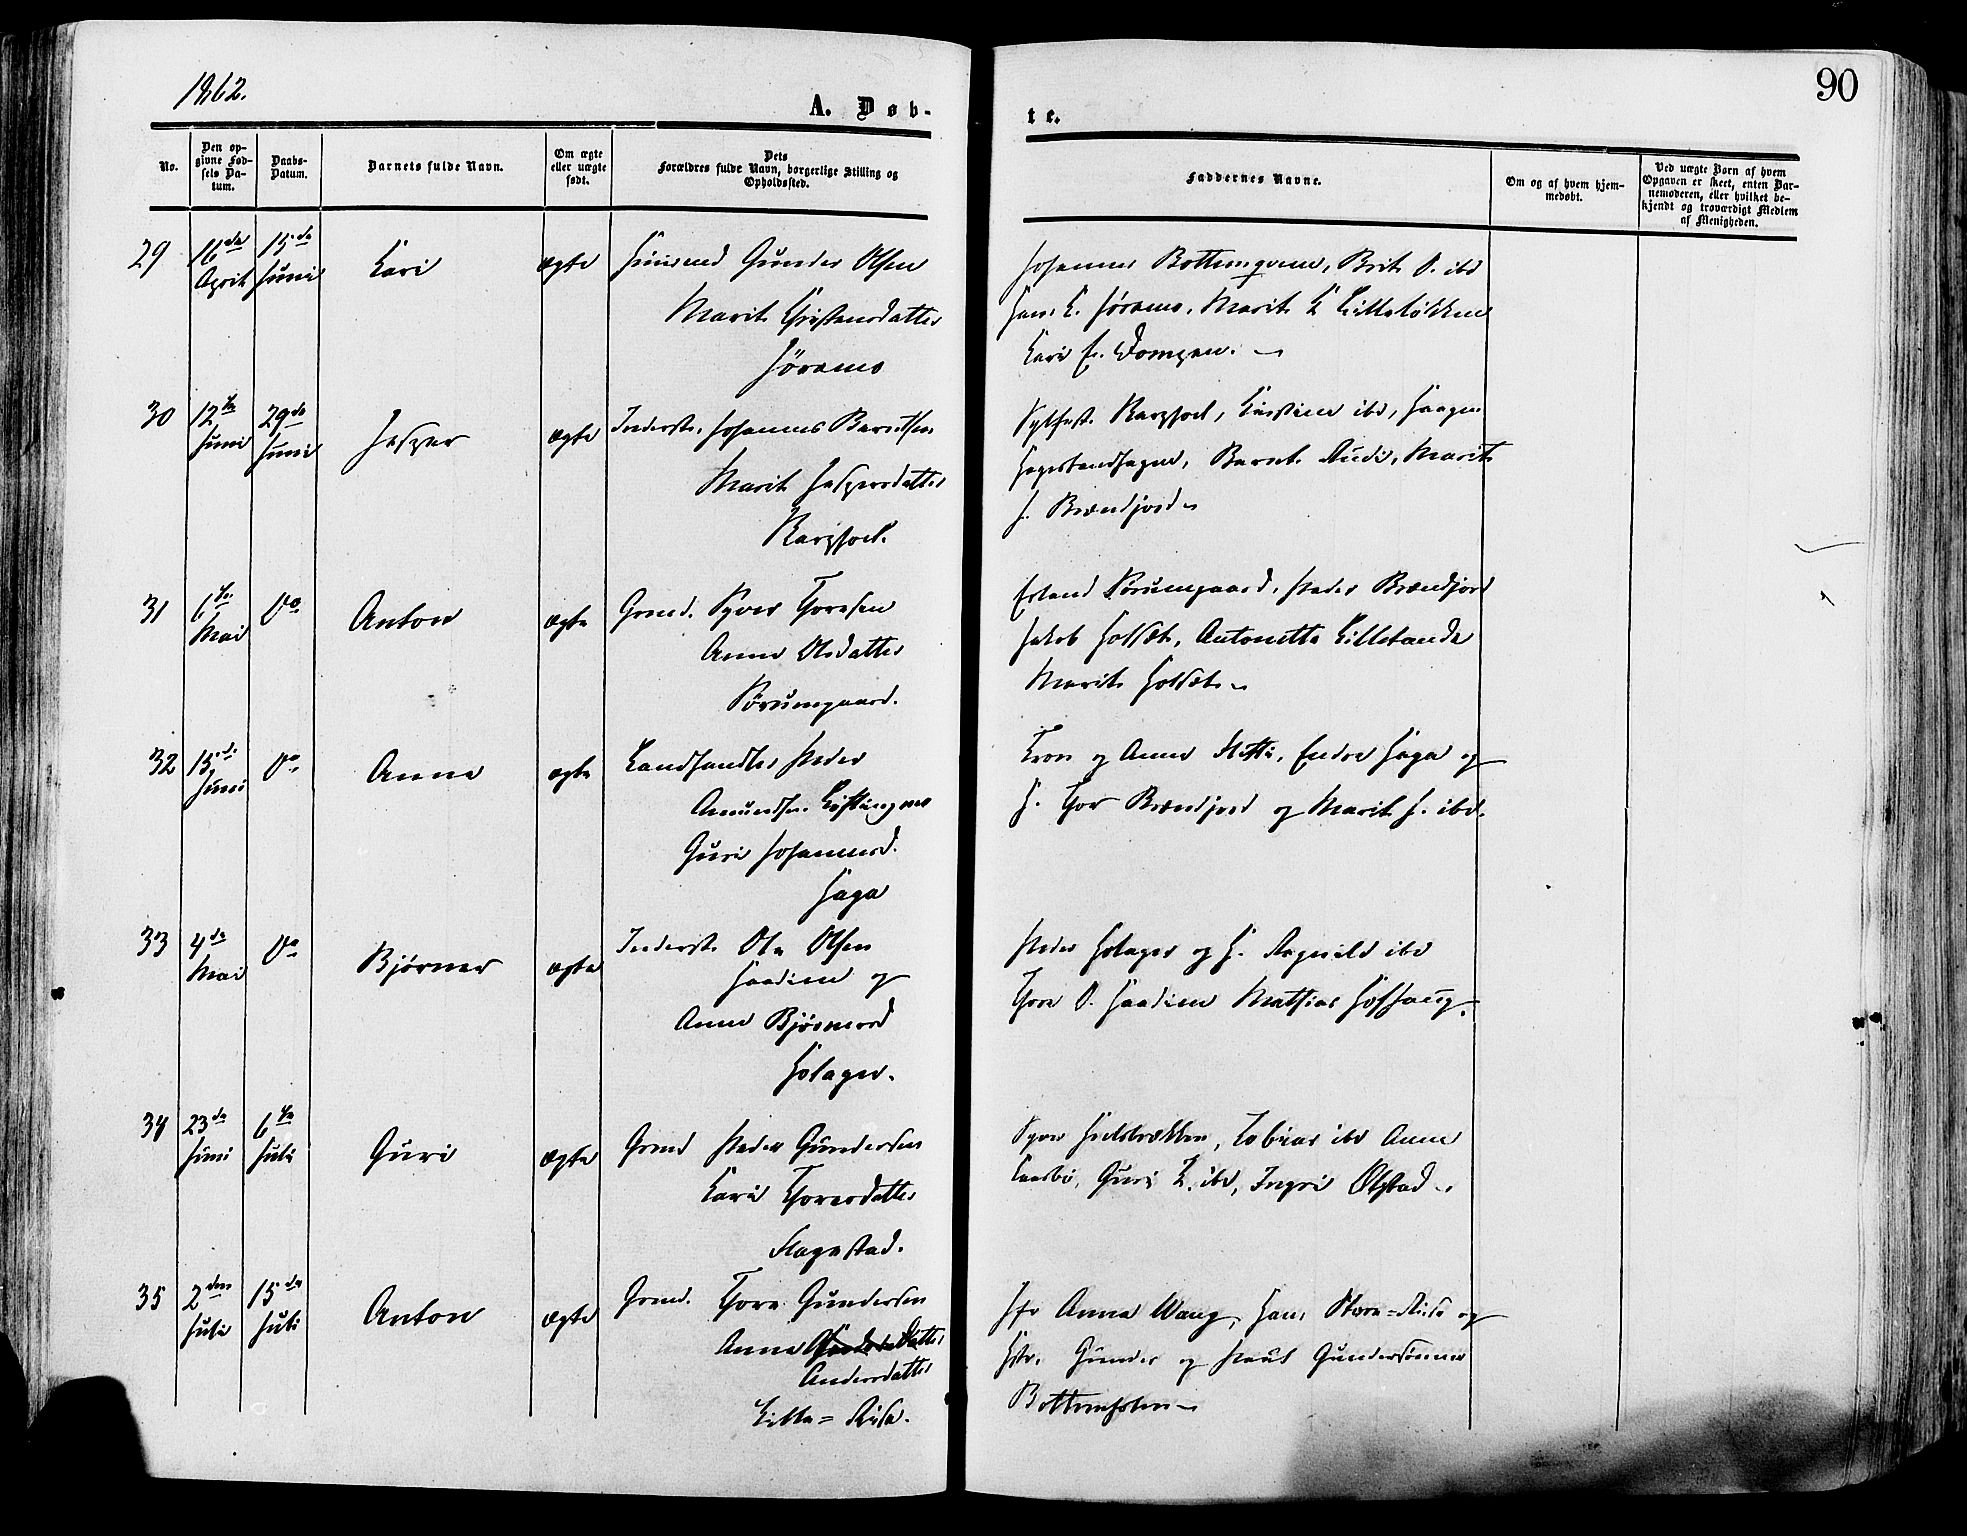 1862.
90
A. Døb-
te.
No.
Den op-
givne Fød-
sels Da-
tum.
Daabs-
Datum.
Barnets fulde Navn.
Om ægte
eller uægte
født.
Dets
Forældres fulde Navn, borgerlige Stilling og
Opholdssted.
Faddernes Navne.
Om og af hvem hjem-
medøbt.
Ved uægte Børn af hvem
Opgaven er skeet, enten Bar-
nemoderen, eller hvilket be-
kjendt og troværdigt Medlem
af Menigheden.
29 16de April 15de Juni Kari ægte Huusmd Gunder Olsen
Marit Christensdatter
Jøramo
Johannes Bottemgvene, Brit O. ibd
Hans C. Jøramo, Marit L Lilleløkken
Kari E.
30 12te Juni 29de Juni Jesper ægte Inderst. Johannes Berntsen
Marit Jespersdatter
Sylfest, Kirstine ibd, Haagen
Bernt, Marit
H. Brændjord
31 6te Mai Do Anton ægte Grmd. Syver Thoresen
Anne Olsdatter
Sørumgaard.
Erland Sørumgaard, Peder Brændjord
Jakob Holsæt, Antonette
Marit Holsæt
32 15de Juni Do Anne ægte Landhandler Peder
Amundsen
Guri Johannesd.
Haga
Tron og Anne, Endre Haga og
H. Thor Brændjord og Marit H. ibd.
33 4de Mai Do Bjørner ægte Inderst. Ole Olsen
Haadiem og
Anne Bjørnersd
Holager.
Peder Holager og H. Ragnild ibd
Thore O. Haadiem Mathias
34 23de Juni 6te Juli Guri ægte Grmd Peder Gundersen
Kari Thoresdatter
Hagestad.
Syver, Tobias ibd Anne
Guri L. ibd, Ingri Olstad
35 2den Juli 15de Juli Anton ægte Grmd. Thore Gundersen
Anne
Andersdatter
Lille=Riise.
Jfr Anna Wang, Hans Store=Riise og
Gunder og Poul Gundersønner